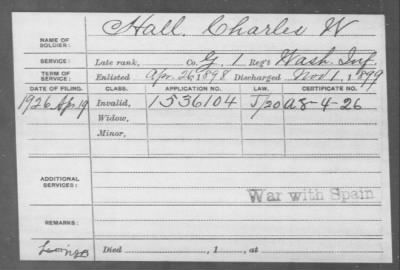 NAME OF SOLDIER: Hall, Charles W
SERVICE: Late rank, Co. G, 1 Reg't Wash. Inf.
TERM OF SERVICE: Enlisted Apr. 26, 1898 Discharged Nov 1, 1899
DATE OF FILING. CLASS. APPLICATION NO. LAW. CERTIFICATE NO.
1926 Ap. 19 Invalid, 1536104 J/20 A8-4-26
Widow,
Minor,
ADDITIONAL SERVICES:
War with Spain
REMARKS:
Died , 1 , at